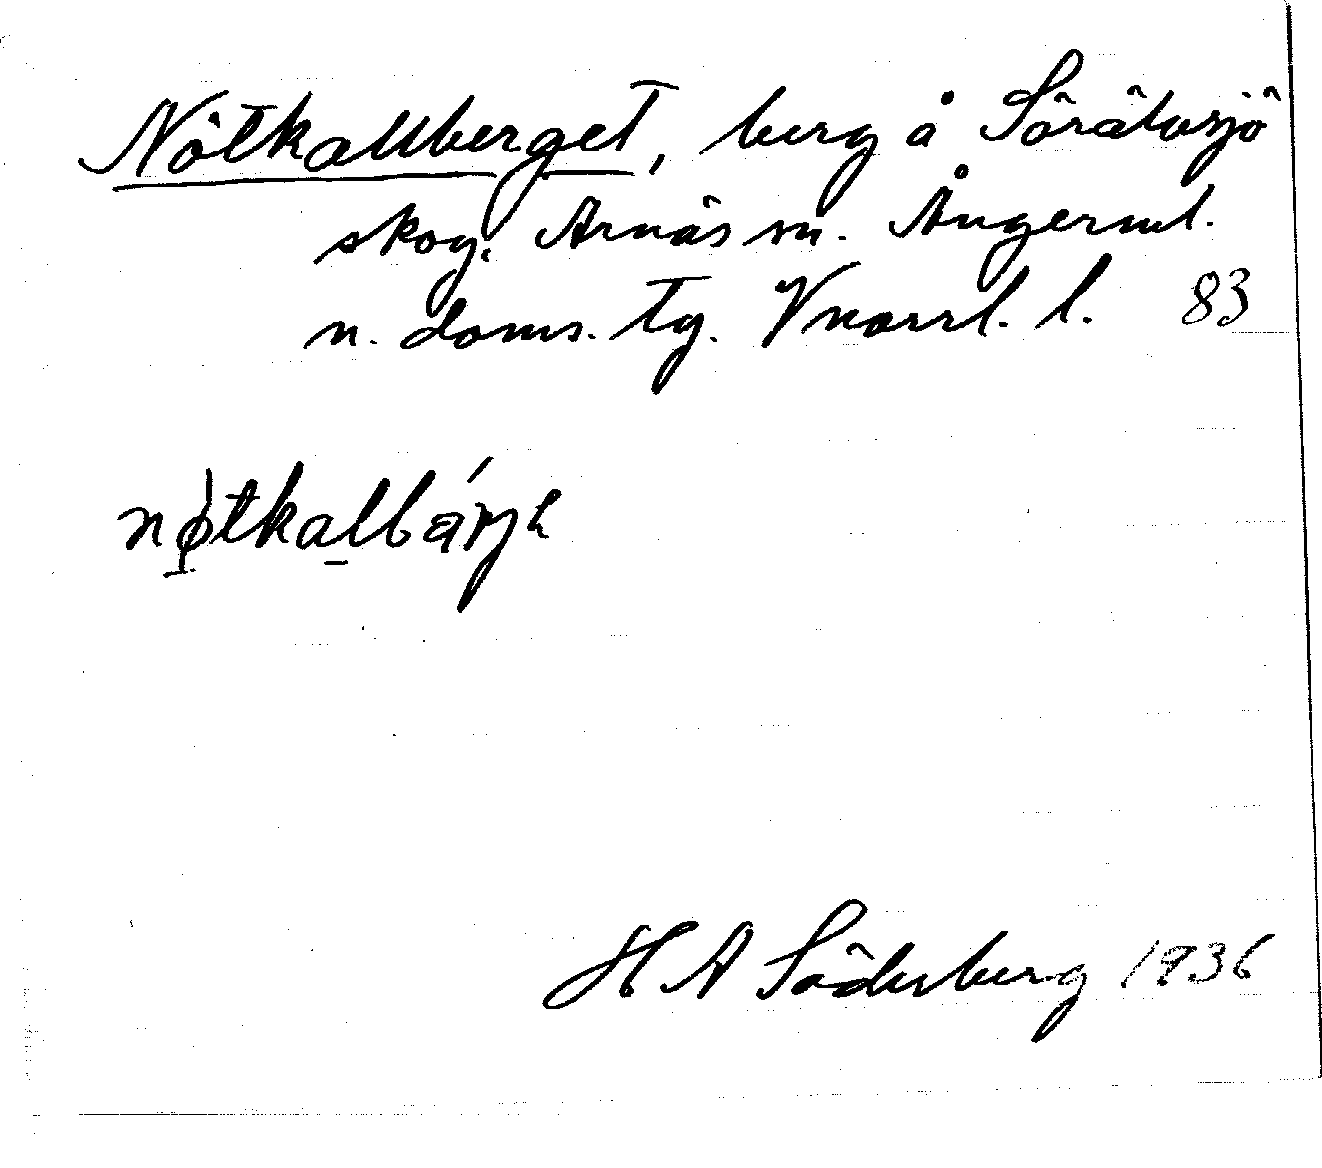 Nötkallberget, berg å Sörätvsjö
skog. Arnäs sn. Ångerml.
n. doms. tg. Vnorrl. l. 83
H A Söderberg 1936